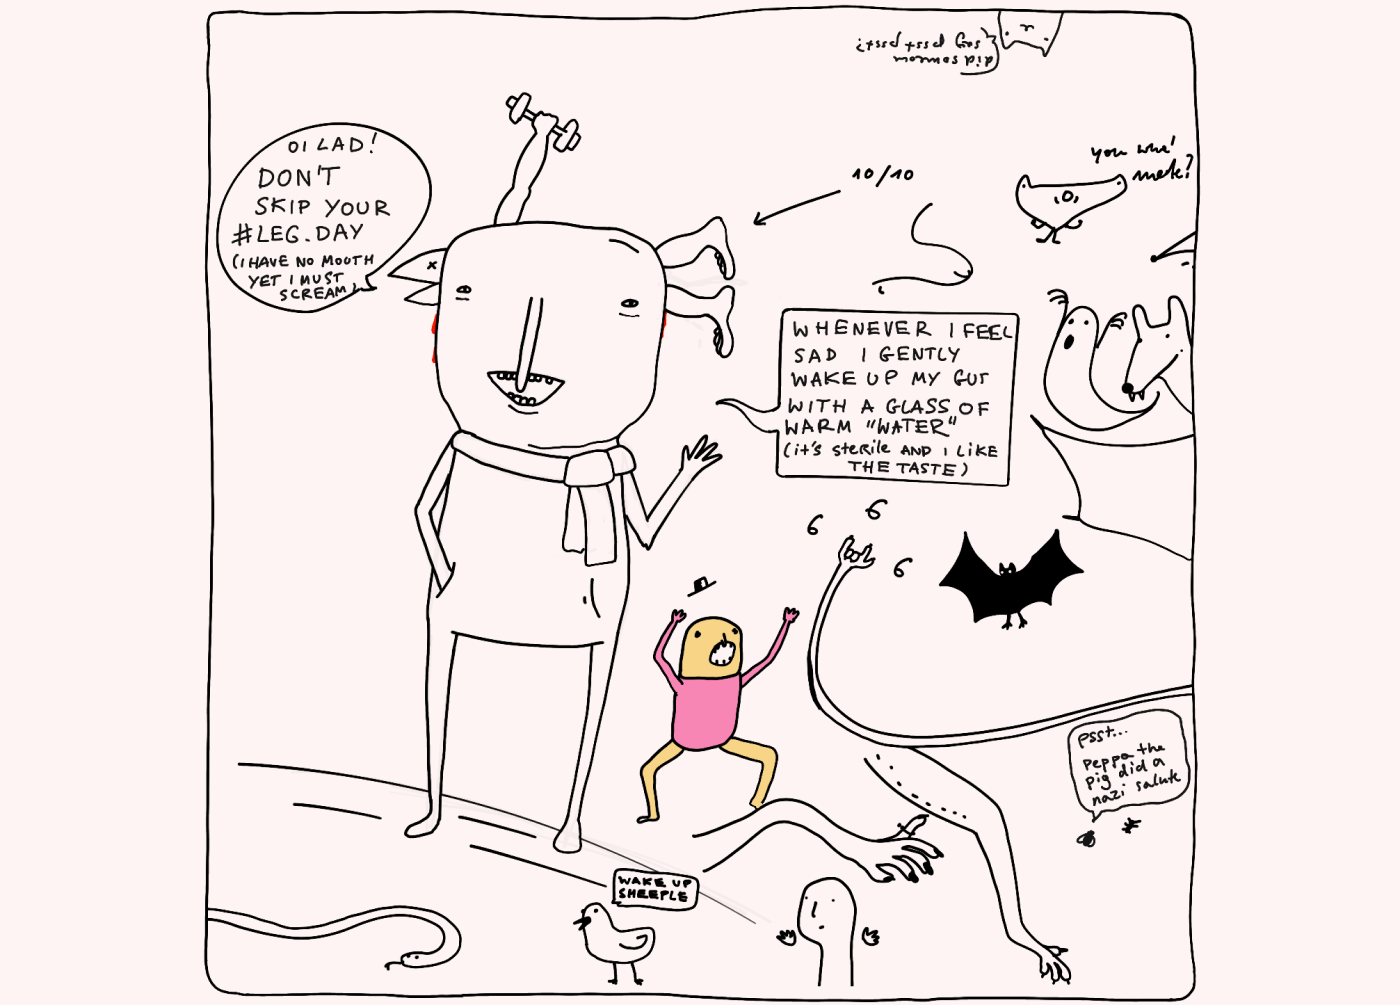 did someone
say psst psst?
OI LAD!
DON'T
SKIP YOUR
#LEG.DAY
(I HAVE NO MOUTH
YET I MUST
SCREAM)
10/10
you wha'
mate?
WHENEVER I FEEL
SAD I GENTLY
WAKE UP MY GUT
WITH A GLASS OF
WARM "WATER"
(it's sterile AND I LIKE
THE TASTE)
6
6
6
psst...
peppa the
pig did a
nazi salute
WAKE UP
SHEEPLE